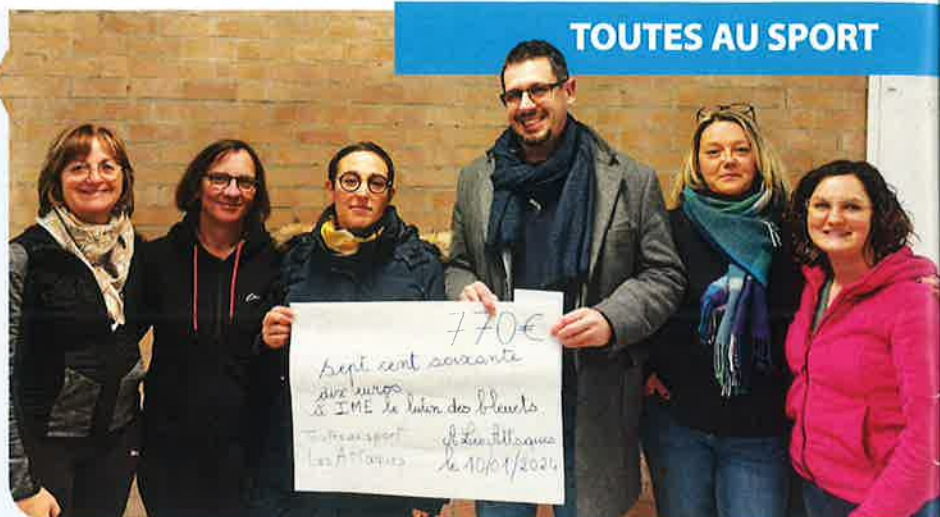 TOUTES AU SPORT
770€
sept cent soixante
dix euros
à IME le lutin des bleuets.
Toutes au sport A Les Attaques
Les Attaques le 10/01/2024